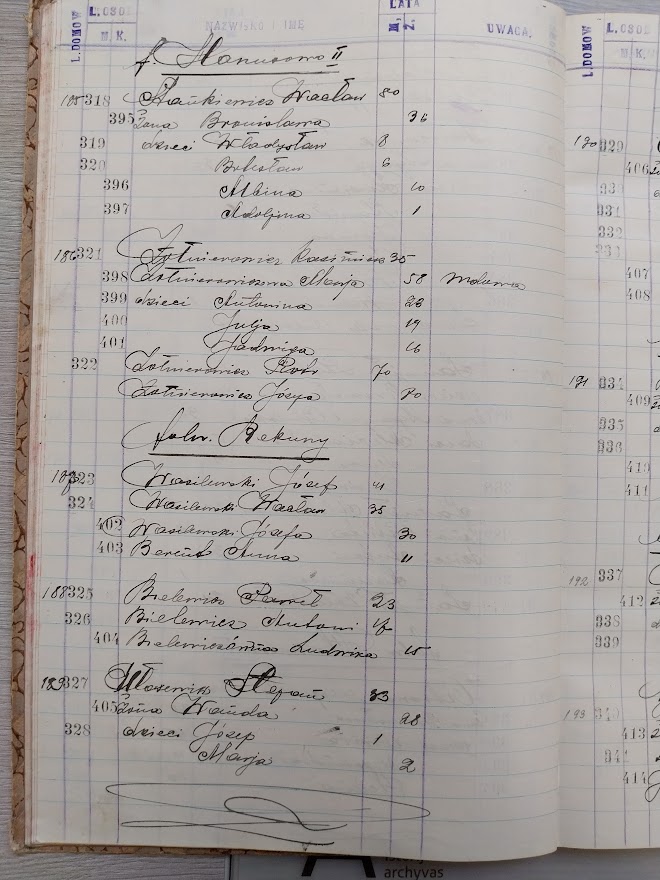 L. DOMÓW L. OSÓB M. K. NAZWISKO i IMIĘ LATA M. Ż. UWAGA.
f. Hanusowo II
185 318 Stankiewicz Wacław 80
395 żona Bronisława 36
319 dzieci Władysław 8
320 Bolesław 6
396 Albina 10
397 Adolfina 1
186 321 Żołnierowicz Kazimierz 35
398 Żołnierowiczowa Marja 58 wdowa
399 dzieci Antonina 28
400 Julja 19
401 Jadwiga 16
322 Żołnierowicz Piotr 70
Żołnierowicz Józefa 70
folw. Rekuny
187 323 Wasilewski Józef 41
324 Wasilewski Wacław 35
402 Wasilewska Józefa 30
403 Anna 11
188 325 Bielewicz Paweł 23
326 Bielewicz Antoni 17
404 Ludwika 15
189 327 Stefan 33
405 żona Wanda 28
328 dzieci Józef 1
Marja 2
L. DOMÓW L. OSÓB M. K.
190 329
406
330
331
332
333
407
408
191 334
409
335
336
410
411
192 337
412
338
339
193 340
413
341
414
archyvas